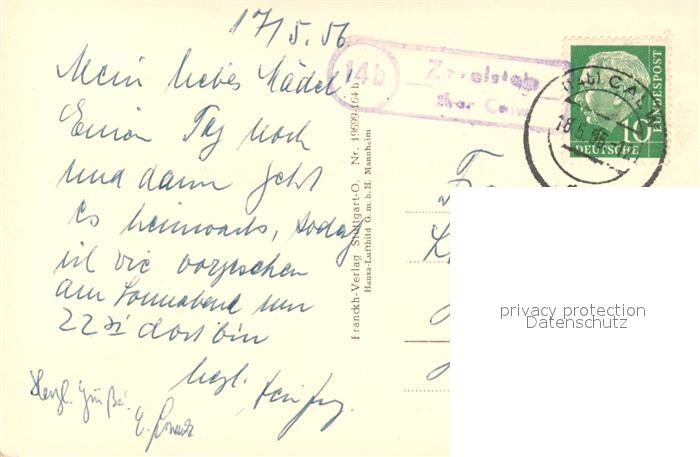 17/5.56.
Mein liebes Mädel!
Einen Tag noch
und dann geht
es heimwärts, sodaß
ich wie vorgesehen
am Sonnabend um
22 dort bin
herzl.
Herzl. Grüße!
E.
14b
Zavelstein
über Calw
(14b) CALW
18.5.56
10
DEUTSCHE
BUNDESPOST
Franckh-Verlag Stuttgart-O. Nr. 19699-164 b
Hansa-Luftbild G.m.b.H. Mannheim
privacy protection
Datenschutz